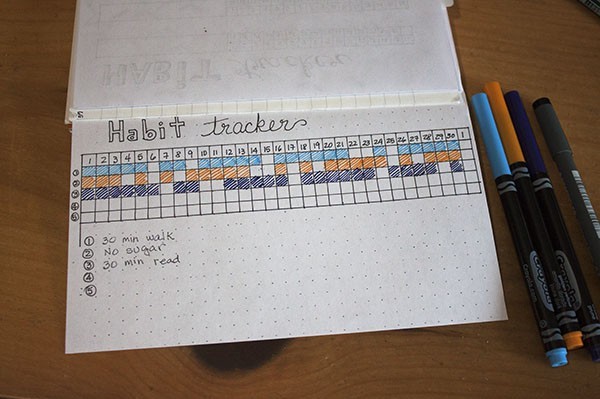 Habit tracker
1 2 3 4 5 6 7 8 9 10 11 12 13 14 15 16 17 18 19 20 21 22 23 24 25 26 27 28 29 30 1
①
②
③
④
⑤
① 30 min walk
② No sugar
③ 30 min read
④
⑤
Crayola